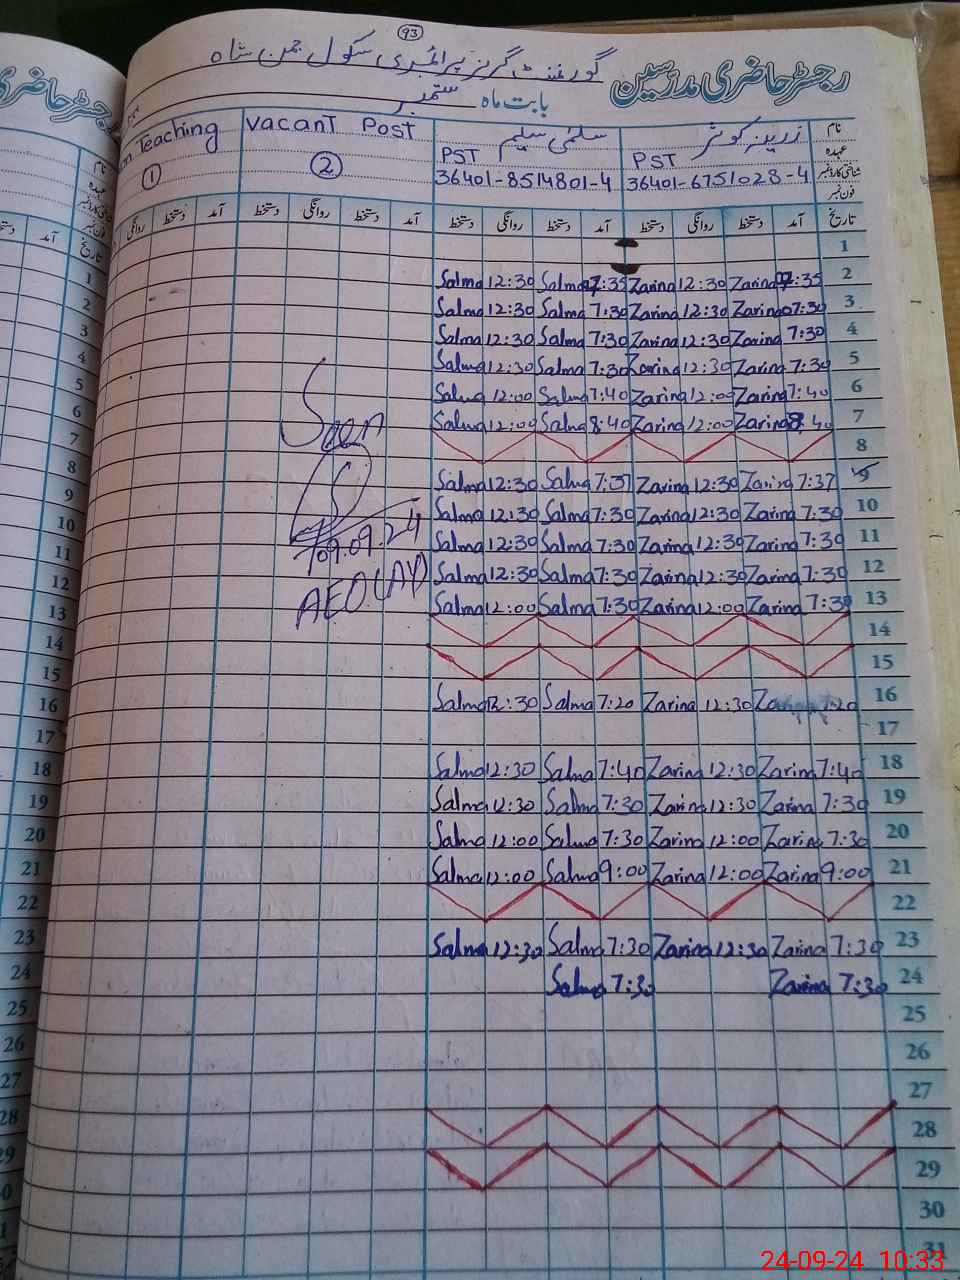 93
رجسٹر حاضری مدرسین گورنمنٹ گرلز پرائمری سکول جمن شاہ
بابت ماہ ستمبر
نام زرینہ کوثر سلمٰی سلیم Vacant Post Teaching
عہدہ PST PST 2 1
شناختی کارڈ نمبر 36401-6751028-4 36401-8514801-4
فون نمبر
تاریخ آمد دستخط روانگی دستخط آمد دستخط روانگی دستخط آمد دستخط روانگی دستخط آمد دستخط روانگی
1
Salma 12:30 Salma 7:35 Zarina 12:30 Zarina 7:35 2
Salma 12:30 Salma 7:30 Zarina 12:30 Zarina 07:30 3
Salma 12:30 Salma 7:30 Zarina 12:30 Zarina 7:30 4
Salma 12:30 Salma 7:30 Zarina 12:30 Zarina 7:30 5
Salma 12:00 Salma 7:40 Zarina 12:00 Zarina 7:40 6
Salma 12:00 Salma 8:40 Zarina 12:00 Zarina 8:40 7
8
Salma 12:30 Salma 7:37 Zarina 12:30 Zarina 7:37 9
Salma 12:30 Salma 7:30 Zarina 12:30 Zarina 7:30 10
Salma 12:30 Salma 7:30 Zarina 12:30 Zarina 7:30 11
Salma 12:30 Salma 7:30 Zarina 12:30 Zarina 7:30 12
Salma 12:00 Salma 7:30 Zarina 12:00 Zarina 7:30 13
Seen
09.09.24
AEO
14
15
Salma 12:30 Salma 7:20 Zarina 12:30 Zarina 7:20 16
17
Salma 12:30 Salma 7:40 Zarina 12:30 Zarina 7:40 18
Salma 12:30 Salma 7:30 Zarina 12:30 Zarina 7:30 19
Salma 12:00 Salma 7:30 Zarina 12:00 Zarina 7:30 20
Salma 12:00 Salma 9:00 Zarina 12:00 Zarina 9:00 21
22
Salma 12:30 Salma 7:30 Zarina 12:30 Zarina 7:30 23
Salma 7:30 Zarina 7:30 24
25
26
27
28
29
30
31
24-09-24 10:33